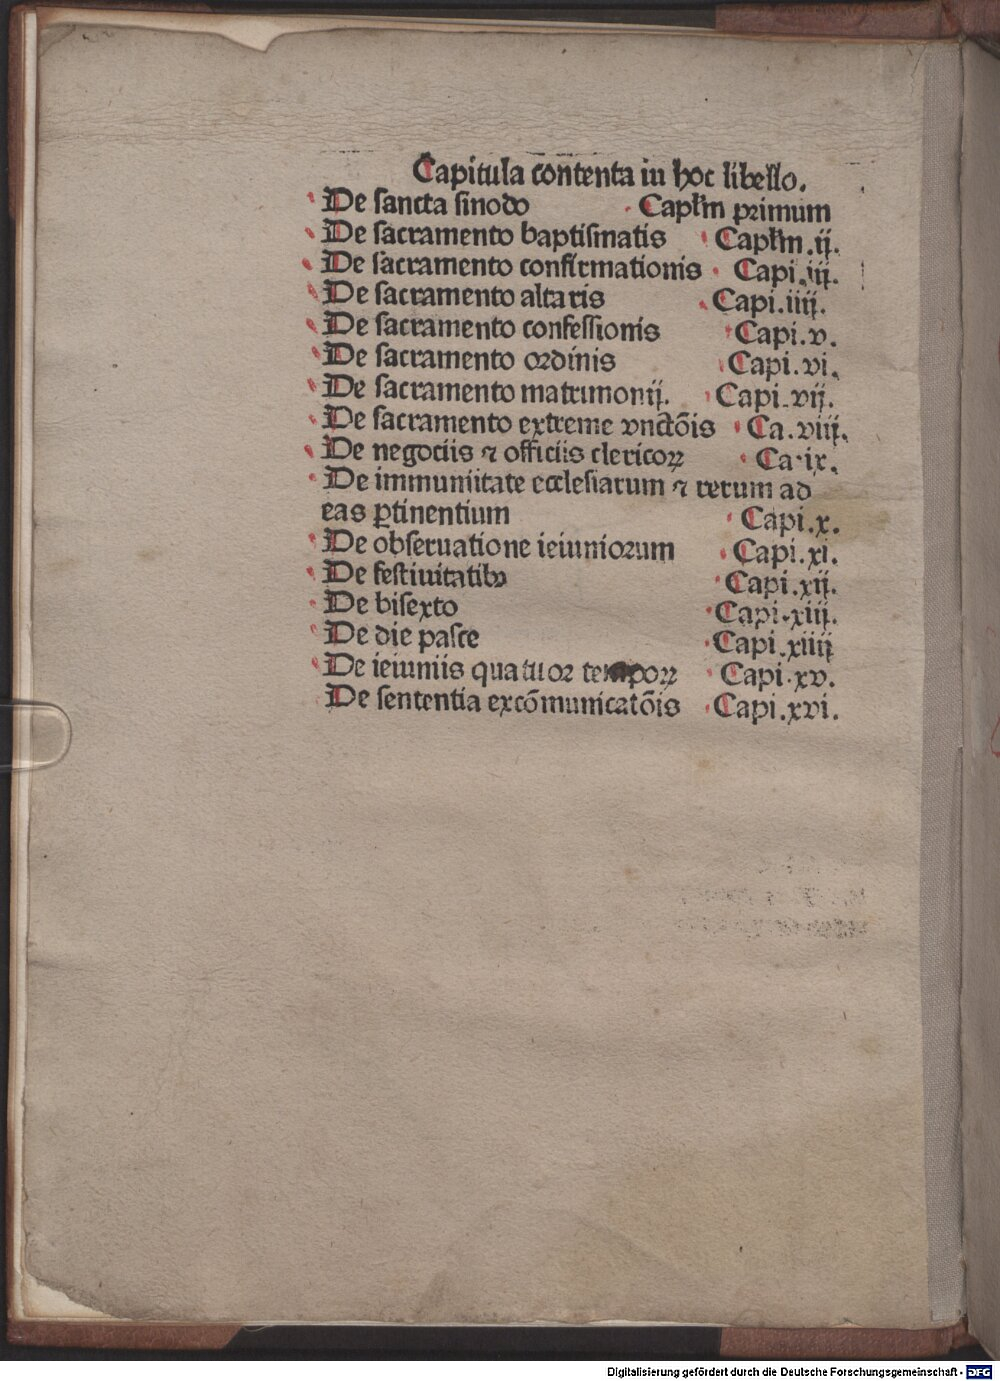 Capitula contenta in hoc libello.
De sancta sinodo Capl̃m primum
De sacramento baptismatis Capl̃m .ij.
De sacramento confirmationis Capi.iij.
De sacramento altaris Capi.iiij.
De sacramento confessionis Capi.v.
De sacramento ordinis Capi.vi.
De sacramento matrimonij. Capi.vij.
De sacramento extreme vnctõis Ca.viij.
De negociis ⁊ officiis clericoꝝ Ca.ix.
De immuniitate ecclesiarum ⁊ rerum ad
eas ꝑtinentium Capi.x.
De obseruatione ieiuniorum Capi.xi.
De festiuitatibꝰ Capi.xij.
De bisexto Capi.xiij.
De die pasce Capi.xiiij
De ieiuniis quatuor tempoꝝ Capi.xv.
De sententia excõmunicatõis Capi.xvi.
Digitalisierung gefördert durch die Deutsche Forschungsgemeinschaft - DFG